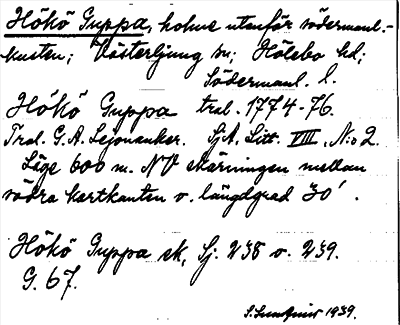 Hökö Guppa, holme utanför södermanl.-
kusten; Västerljung sn; Hölebo hd;
Södermanl. l.
Hökö Guppa tral. 1774-76.
Tral. G.A. Lejonanker. SjA. Litt. VIII, N:o 2.
Läge 600 m. NV skärningen mellan
södra kartkanten o. längdgrad 30'.
Hökö Guppa sk, Sj. 238 o. 239.
G. 67.
S. 1939.